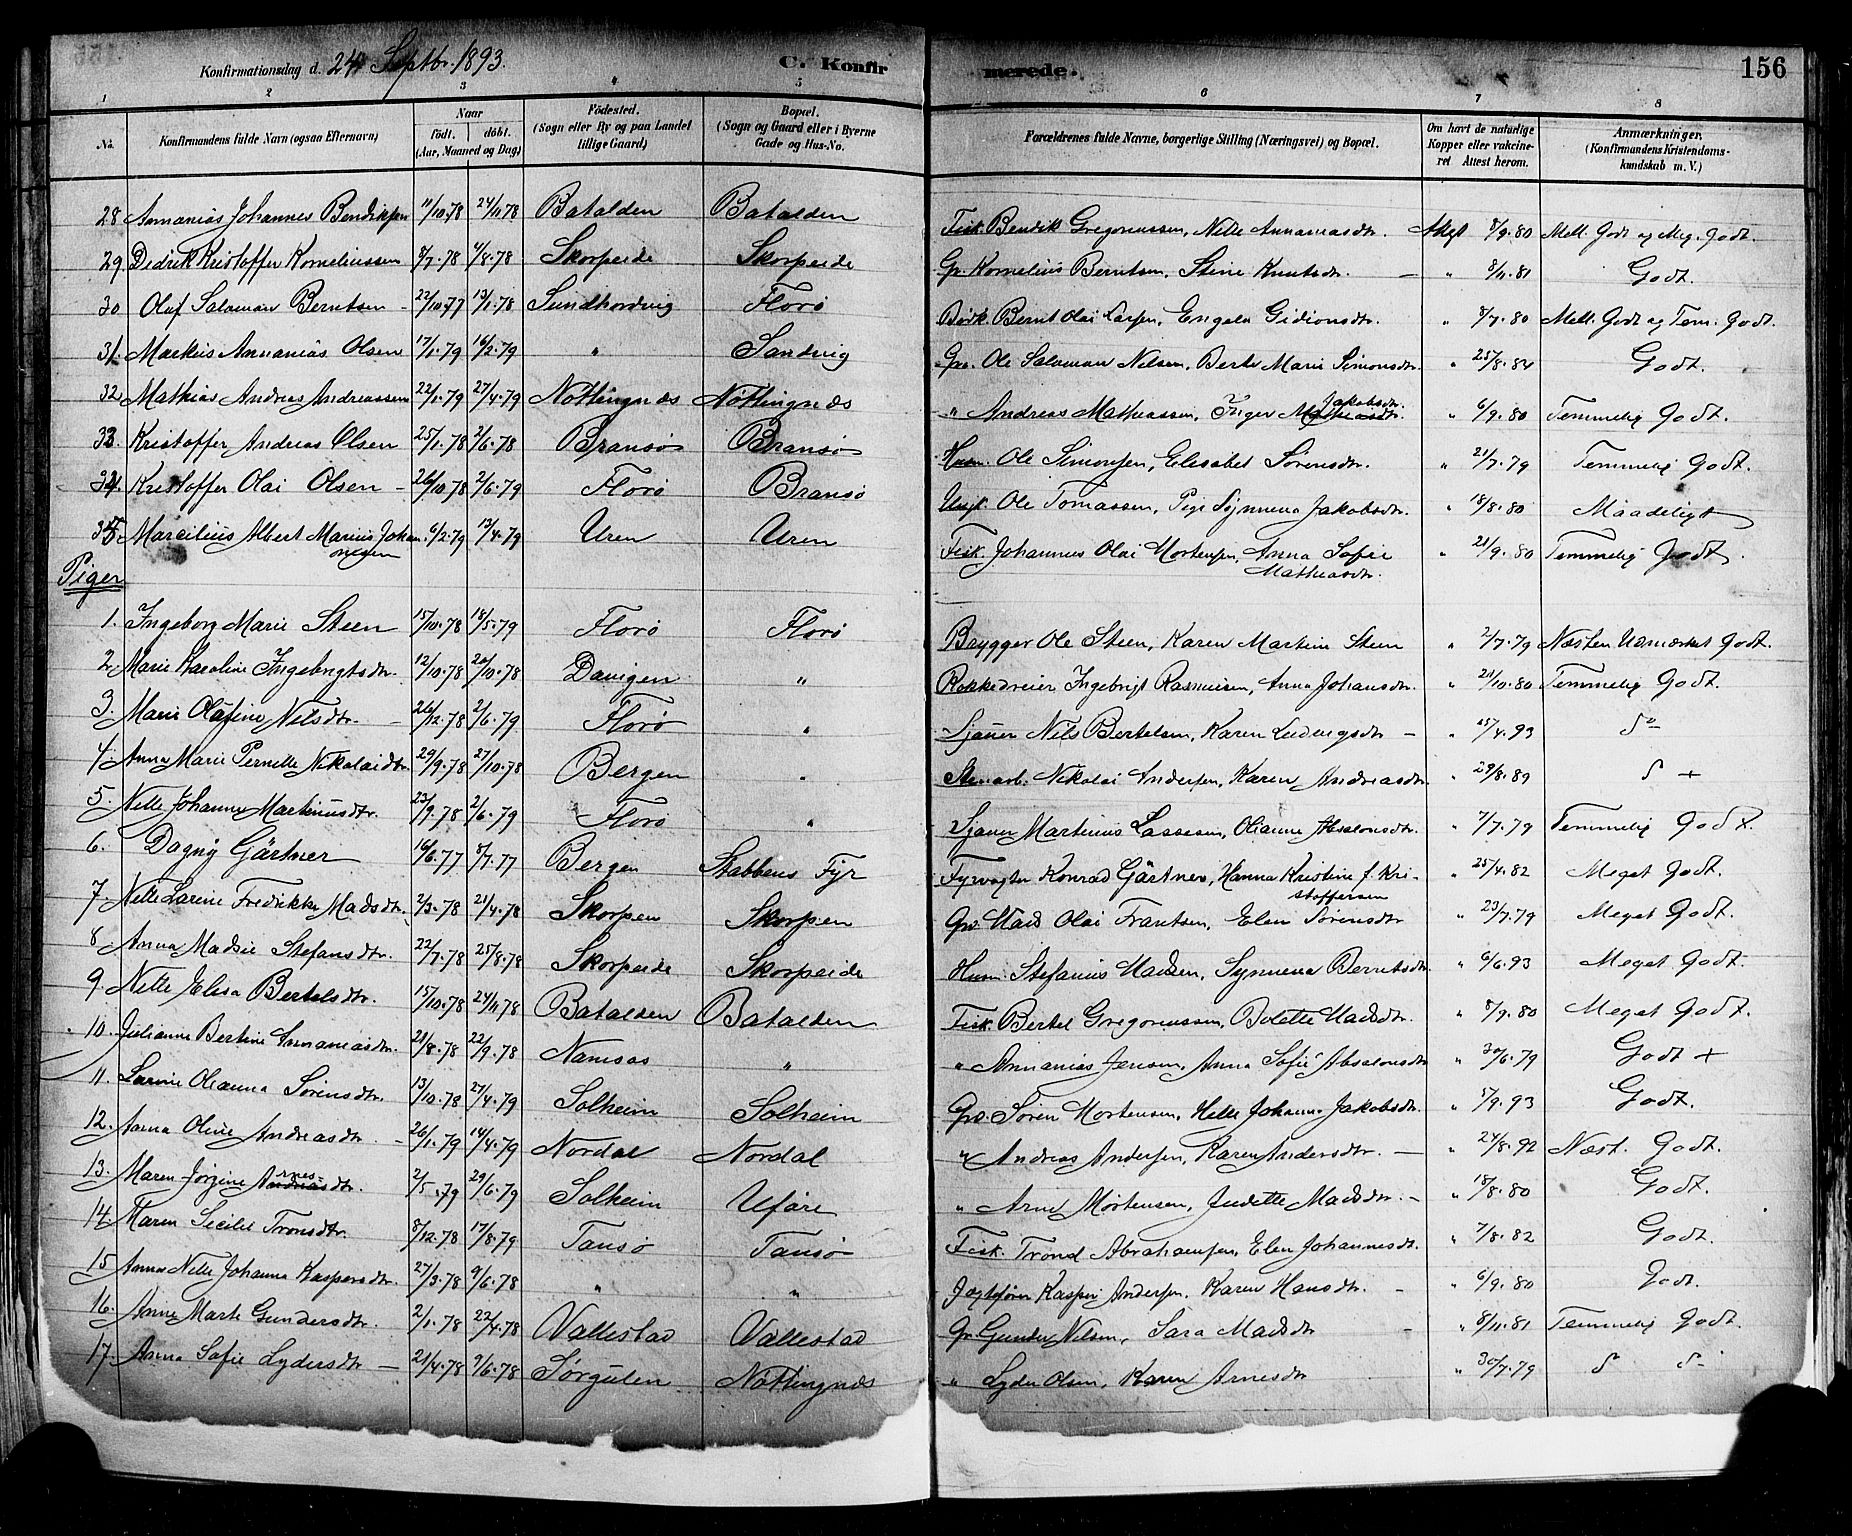 Konfirmationsdag d. 24 Septbr. 1893. C. Konfirmerede. 156
1 2 3 4 5 6 7 8
No. Konfirmandens fulde Navn (ogsaa Efternavn) Naar født. døbt. (Aar, Maaned og Dag) Fødested. (Sogn eller By og paa Landet tillige Gaard) Bopæl. (Sogn og Gaard eller i Byerne Gade og Hus-No. Forældrenes fulde Navne, borgerlige Stilling (Næringsvei) og Bopæl. Om havt de naturlige Kopper eller vakcineret Attest herom. Anmærkninger. (Konfirmandens Kristendomskundskab m. V.)
28 Annanias Johannes Bendiksen 11/10.78 24/11.78 Batalden Batalden Fisk. Bendik Gregoriussen, Nille Annaniasdtr. Attest 8/9.80 Mell. Godt og Meg. Godt.
29 Didrik Kristoffer Korneliussen 8/7.78 4/8.78 Skorpeide Skorpeide Gr. Kornelius Berntsen, Stine Knutsdtr. — " 8/11.81 Godt.
30 Oluf Salamon Berntsen - 22/10.77 13/1.78 Sundhordvig Florø Bødk. Bernt Olai Larsen, Engela Gidionsdtr. " 8/7.80 Mell. Godt og Tem. Godt.
31. Markus Annanias Olsen 17/1.79 16/2.79 " Sandvig Grs. Ole Salamon Nilsen, Berte Marie Simonsdtr. " 25/8.84 Godt.
32 Mathias Andreas Andreassen 22/1.79 27/4.79 Nøttingnæs Nøttingnæs " Andreas Mathiassen, Inger Jakobsdtr. " 6/9.80 Temmelig Godt.
33. Kristoffer Andreas Olsen 25/1.78 2/6.78 Bransø Bransø Hum. Ole Simonsen, Elisabet Sørensdtr. " 21/7.79 Temmelig Godt.
34. Kristoffer Olai Olsen - 26/10.78 2/6.79 Florø Bransø Ungk. Ole Tomassen, Pige Synneva Jakobsdtr. " 18/8.80 Maadeligt
35 Marcilius Albert Marius Johannesen 6/2.79 13/4.79 Uren Uren Fisk. Johannes Olai Mortensen, Anna Sofie Mathiasdtr. " 21/9.80 Temmelig Godt.
Piger
1. Ingeborg Marie Steen 15/10.78 18/5.79 Florø Florø Brygger Ole Steen, Karen Martine Steen " 2/7.79 Næsten Udmærket Godt.
2. Marie Karoline Ingebrigtsdtr. 12/10.78 20/10.78 Davigen " Rokkedreier Ingebrigt Rasmussen, Anna Johansdtr. " 21/10.80 Temmelig Godt.
3. Marie Olafine Nilsdtr. - 26/12.78 2/6.79 Florø " Sjauer Nils Bertelsen, Karen Ludvigsdtr — " 15/4.93 Do
4. Anna Marie Pernille Nikolaidtr. 29/9.78 27/10.78 Bergen " Stenarb. Nikolai Andersen, Karen Andreasdtr. " 29/8.89 D +
5. Nille Johanna Martinusdtr. 23/9.78 2/6.79 Florø " Sjauer Martinus Lassesen, Olianna Absalonsdtr. " 7/7.79 Temmelig Godt.
6. Dagny Gärtner 16/6.77 8/7.77 Bergen Stabbens Fyr Fyrvogter Konrad Gärtner, Hanna Kristine f. Kristoffersen " 25/4.82 Meget Godt.
7. Nille Larine Fredrikke Madsdtr. 2/3.78 21/4.78 Skorpen Skorpen Grs. Mads Olai Frantsen, Elen Sørensdtr " 23/7.79 Meget Godt.
8. Anna Madsie Stefansdtr. 22/7.78 25/8.78 Skorpeide Skorpeide Hum. Stefanus Madsen, Synneva Berntsdtr. " 6/6.93 Meget Godt
9. Nille Elisa Bertelsdtr. 15/10.78 24/11.78 Batalden Batalden Fisk. Bertel Gregoriussen, Bolette Madsdtr. " 8/9.80 Meget Godt
10. Julianne Bertine Annaniasdtr. 21/8.78 22/9.78 Namsos " " Annanias Jensen, Anna Sofie Absalonsdtr " 30/6.79 Godt +
11. Larine Olianna Sørensdtr. 13/10.78 27/4.79 Solheim Solheim Grs. Søren Mortensen, Nille Johanna Jakobsdtr. " 5/9.93 Godt.
12. Anna Oline Andreasdtr. - 26/1.79 14/4.79 Nordal Nordal " Andreas Andersen, Karen Andersdtr. — " 24/8.92 Næst. Godt.
13. Maren Jørgine Arnesdtr. 2/5.79 29/6.79 Solheim Uføre " Arne Mortensen, Judette Madsdtr. - " 18/8.80 Godt.
14. Maren Secilie Tronsdtr. 8/12.78 17/8.79 Tansø Tansø Fisk. Trond Abrahamsen, Elen Johannesdtr. " 7/8.82 Godt.
15 Anna Nille Johanna Kaspersdtr. 27/3.78 9/6.78 " " Jagtefører Kasper Andersen, Karen Hansdtr. - " 6/9.80 Godt.
16. Anne Marte Gundersdtr. 2/1.78 22/4.78 Vallestad Vallestad Gr. Gunder Nilsen, Sara Madsdtr — " 8/11.81 Temmelig Godt.
17. Anna Sofie Lydersdtr — 21/4.78 9/6.78 Sørgulen Nøttingnæs " Lyder Olsen, Karen Arnesdtr " 30/7.79 D D